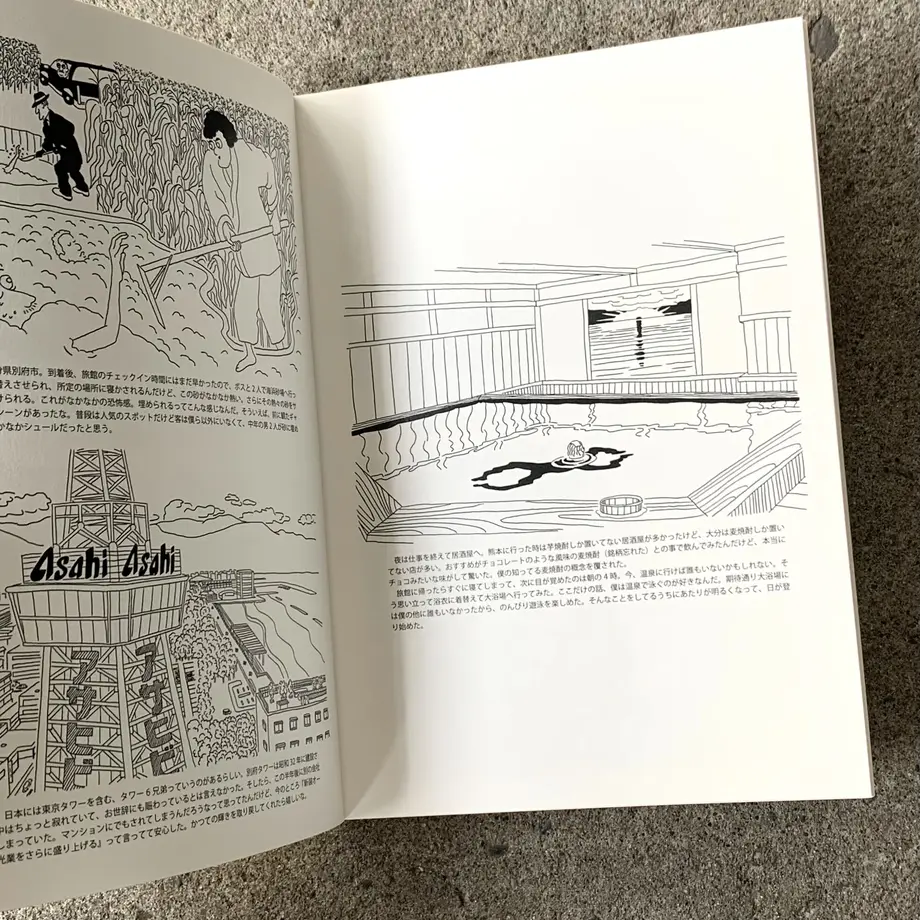 分県別府市。到着後、旅館のチェックイン時間にはまだ早かったので、ボスと2人で海浜砂場へ行っ
替えさせられ、所定の場所に寝かされるんだけど、この砂がなかなか熱い。さらにその熱々の砂をサ
けられる。これがなかなかの恐怖感。埋められるってこんな感じなんだ。そういえば、前に観たギャ
シーンがあったな。普段は人気のスポットだけど客は僕ら以外にいなくて、中年の男2人が砂に埋め
かなかシュールだったと思う。
Asahi Asahi
アサヒビ
アサヒビ
日本には東京タワーを含む、タワー6兄弟っていうのがあるらしい。別府タワーは昭和32年に建設さ
中はちょっと寂れていて、お世辞にも賑わっているとは言えなかった。そしたら、この半年後に別の会社
しまっていた。マンションにでもされてしまうんだろうなって思ってたんだけど、今のところ『新装オー
光業をさらに盛り上げる』って言ってて安心した。かつての輝きを取り戻してくれたら嬉しいな。
夜は仕事を終えて居酒屋へ。熊本に行った時は芋焼酎しか置いてない居酒屋が多かったけど、大分は麦焼酎しか置い
てない店が多い。おすすめがチョコレートのような風味の麦焼酎（銘柄忘れた）との事で飲んでみたんだけど、本当に
チョコみたいな味がして驚いた。僕の知ってる麦焼酎の概念を覆された。
旅館に帰ったらすぐに寝てしまって、次に目が覚めたのは朝の4時。今、温泉に行けば誰もいないかもしれない。そ
う思い立って浴衣に着替えて大浴場へ行ってみた。ここだけの話、僕は温泉で泳ぐのが好きなんだ。期待通り大浴場に
は僕の他に誰もいなかったから、のんびり遊泳を楽しめた。そんなことをしてるうちにあたりが明るくなって、日が登
り始めた。